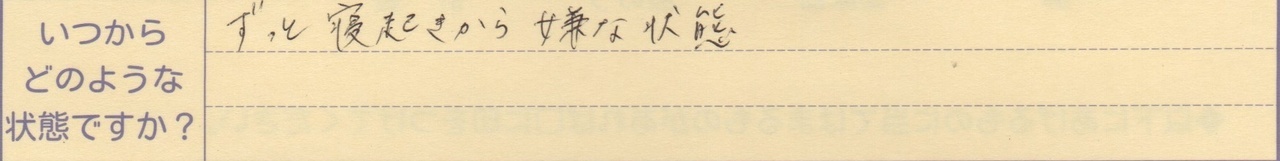 いつから
どのような
状態ですか？
ずっと寝起きから嫌な状態